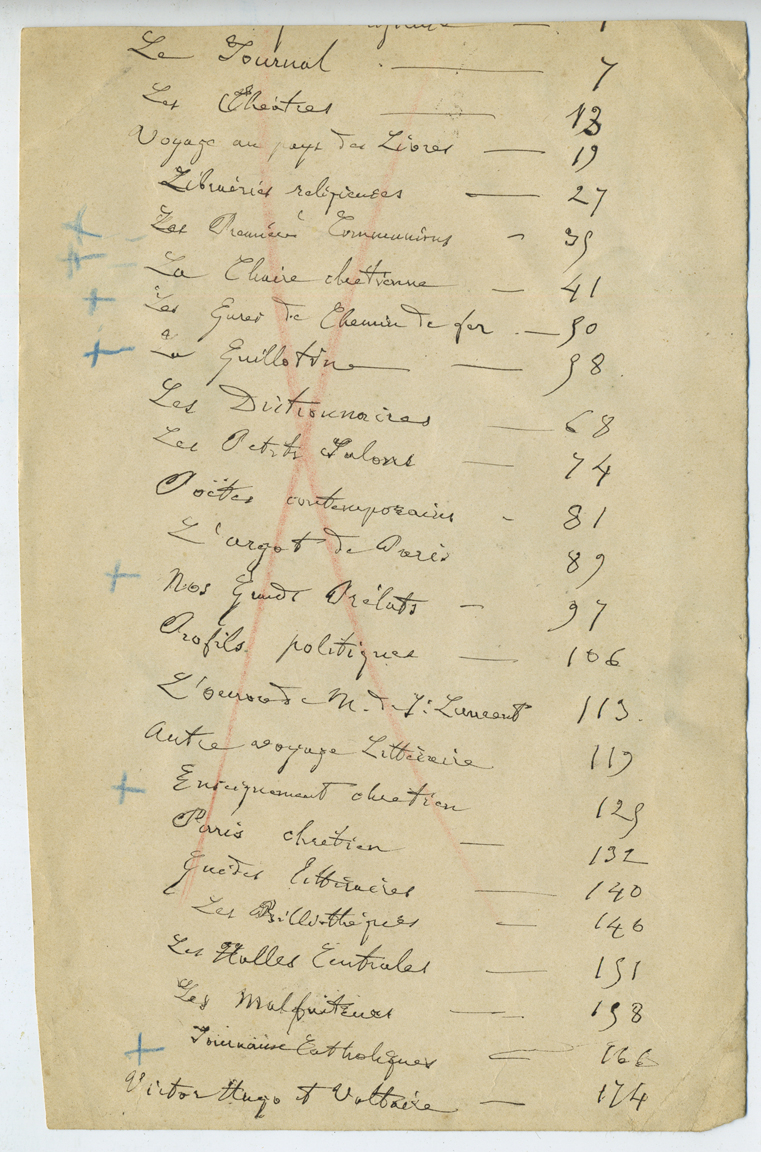 1
Le Journal — 7
Les Théâtres — 13
Voyage au pays des Livres — 19
Librairies religieuses — 27
Les Premières Communions - 35
La Chaire chrétienne — 41
Les Gares de Chemin de fer — 50
La Guillotine — 58
Les Dictionnaires — 68
Les Petits Salons — 74
Poëtes contemporains - 81
L'argot de Paris 89
Nos Grands Prélats - 97
Profils politiques — 106
L'oeuvre de M. de St. Laurent 113.
Autre voyage Littéraire 119
Enseignement chrétien 125
Paris chrétien — 132
littéraires — 140
Les Bibliothèques — 146
Les Halles Centrales — 151
Les Malfaiteurs — 158
Journaux Catholiques — 166
Victor Hugo et Voltaire — 174